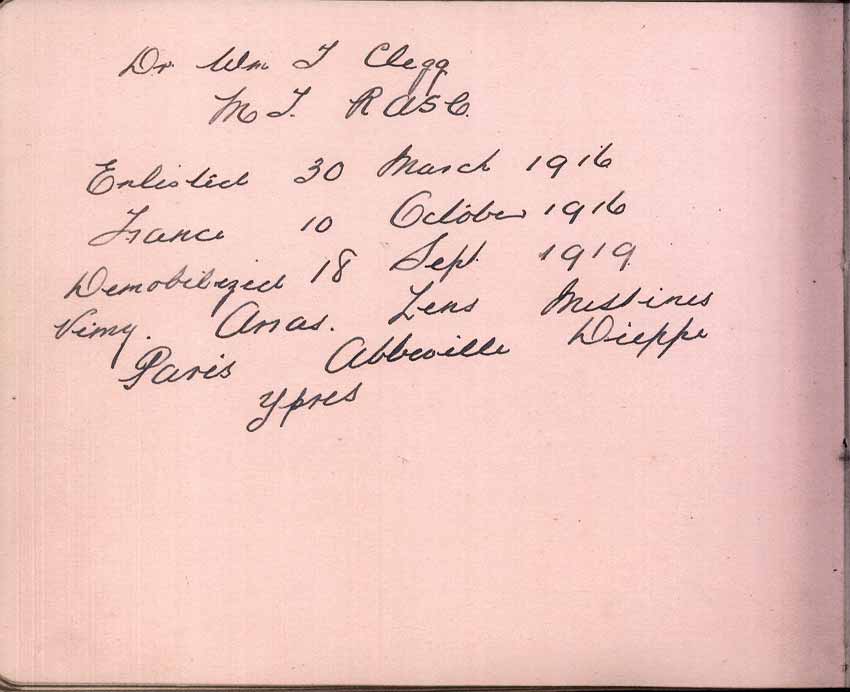 Dr Wm T Clegg
M T. RASC.
Enlisted 30 March 1916
France 10 October 1916
Demobilized 18 Sept. 1919
Vimy. Arras. Lens Messines
Paris Abbeville Dieppe
Ypres